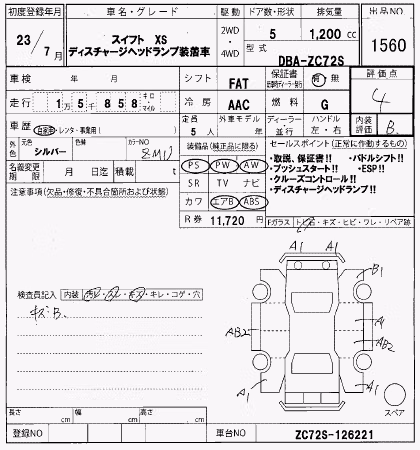 初度登録年月
車名・グレード
駆動
ドア数・形状
排気量
出品NO
23/7月
スイフト XS
ディスチャージヘッドランプ装着車
2WD
・
4WD
5
1,200 cc
型式
DBA-ZC72S
1560
車検
年 月
シフト
FAT
保証書
有・無
評価点
走行
1万5千858
キロ
マイル
冷房
AAC
燃料
G
4
車歴
自家用・レンタ・事業用( )
定員
5人
外車モデル
年
ディーラー
・
並行
ハンドル
左・右
内装
評価
B
外色
元色
シルバー
色替
カラーNO
ZMU
装備品(純正品に限る)
セールスポイント(正常に作動するもの)
PS PW AW
・取説、保証書!! ・パドルシフト!!
名義変更
期限
月 日迄
積載
t
SR TV ナビ
・プッシュスタート!! ・ESP!!
・クルーズコントロール!!
注意事項(欠品・修復・不具合箇所および状態)
カワ エアB ABS
・ディスチャージヘッドランプ!!
R券 11,720 円
Fガラス
トビA・キズ・ヒビ・ワレ・リペア跡
A1 A1
B1
検査員記入
内装
汚レ・スレ・キズ・キレ・コゲ・穴
キズB.
AB2
A1
AB2
A1
A1
スペア
長さ cm
幅 cm
高さ cm
登録NO
車台NO
ZC72S-126221